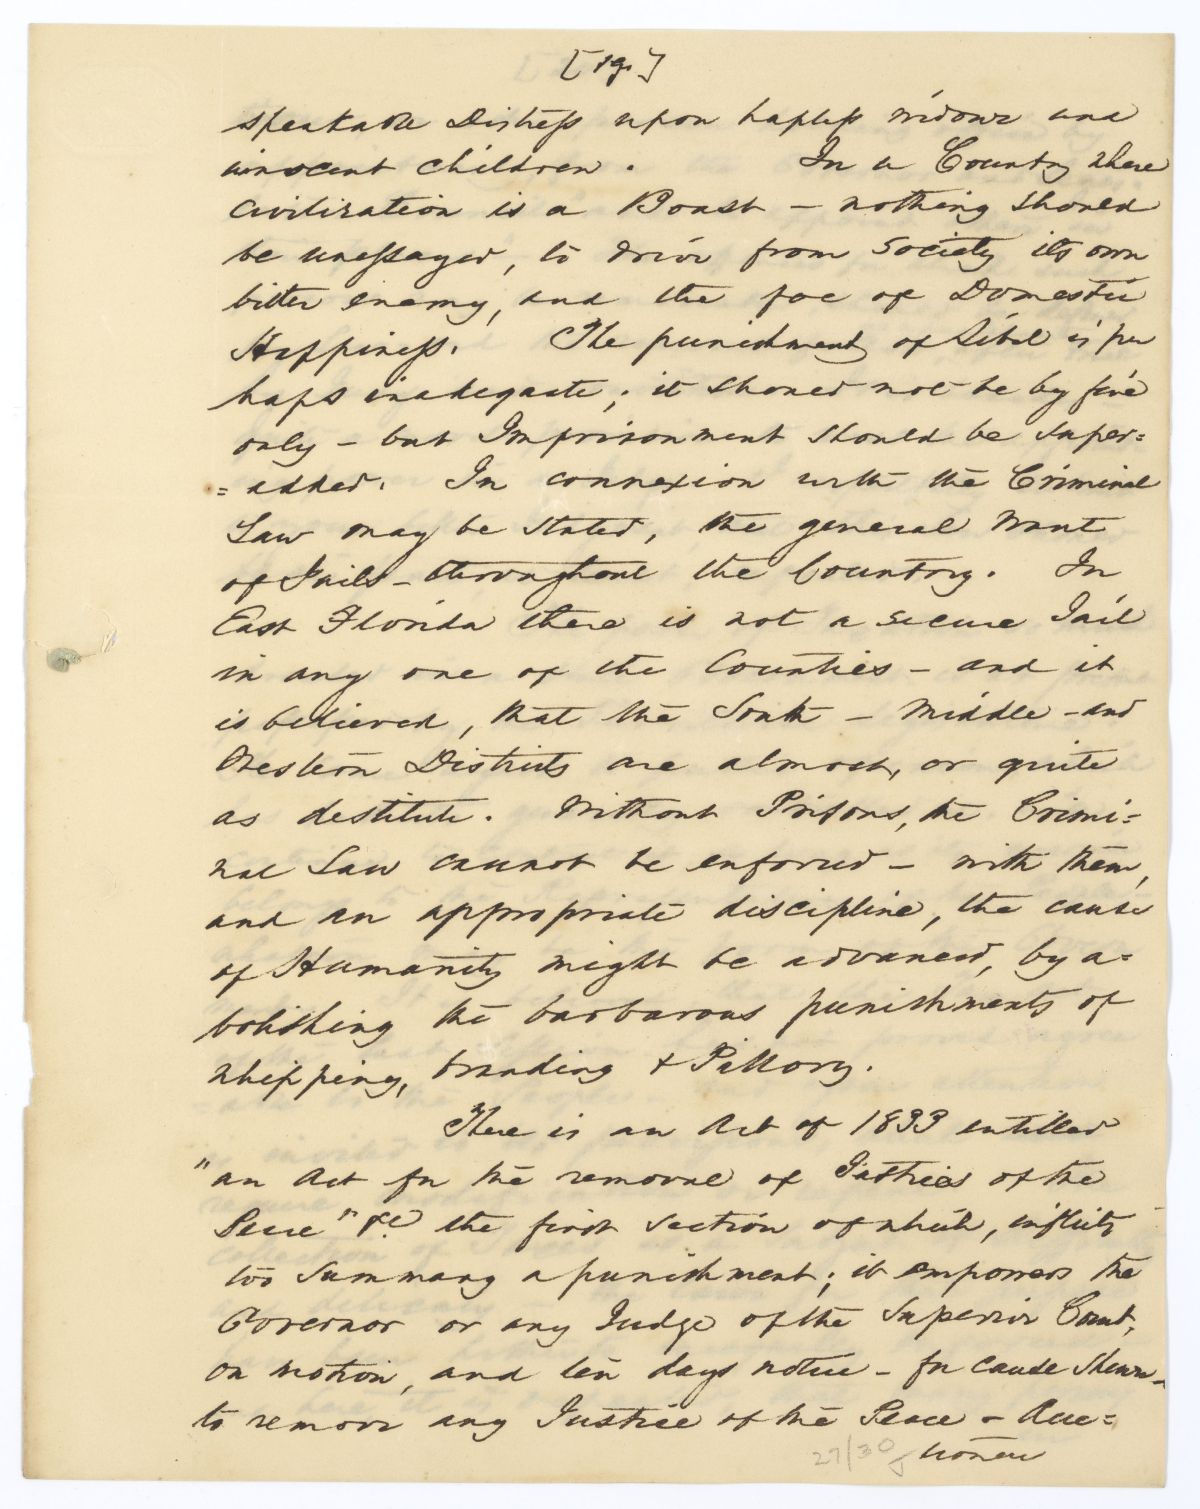 [19.]
speakable Distress upon hapless widows and
innocent children. In a Country where
civilization is a Boast – nothing should
be unessayed, to drive from Society its own
bitter enemy, and the foe of Domestic
Happiness. The punishment of Libel is per
haps inadequate; it should not be by fine
only – but Imprisonment should be super=
=added. In connexion with the Criminal
Law may be stated, the general want
of Jails – throughout the Country. In
East Florida there is not a secure Jail
in any one of the Counties – and it
is believed, that the South – Middle – and
Western Districts are almost, or quite
as destitute. Without Prisons, the Crimi=
nal Law cannot be enforced – with them,
and an appropriate discipline, the cause
of Humanity might be advanced, by a=
bolishing the barbarous punishments of
whipping, branding & Pillory.
There is an Act of 1833 entitled
"an Act for the removal of Justices of the
Peace" &c the first section of which, inflicts
too summary a punishment; it empowers the
Governor or any Judge of the Superior Court,
on motion, and ten days notice – for cause shewn –
to remove any Justice of the Peace – Auc=
tioneer
27/30